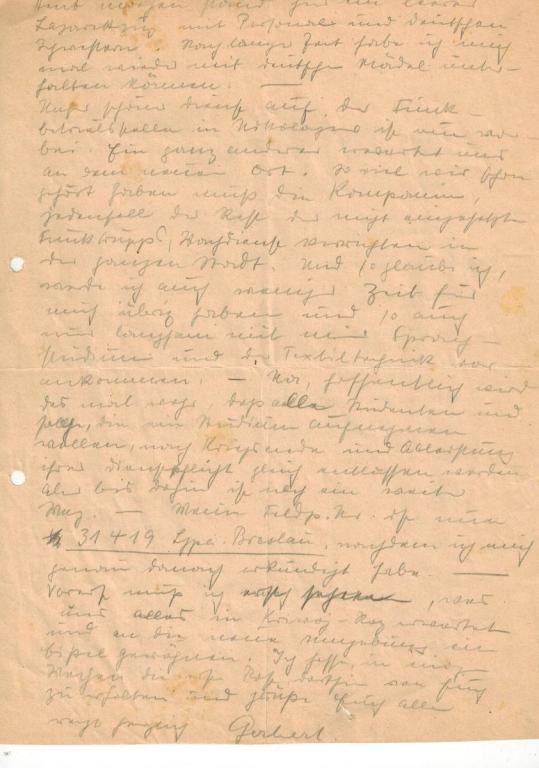 Lazarettzug mit Personal und deutschen
Schwestern. Nach langer Zeit habe ich mich
mal wieder mit deutsche Mädel unter-
halten können. —
Unser schöner Dienst auf der Funk-
betriebsstelle in Nikolajew ist nun vor-
bei. Ein ganz anderer erwartet uns
an dem neuen Ort. So viel wir schon
gehört haben muß die Kompanie,
jedenfalls der Rest der nicht eingesetzten
Funktrupps, Wachdienst verrichten in
der ganzen Stadt. Und so glaube ich,
werde ich auch weniger Zeit für
mich übrig haben und so auch
nur langsam mit mein Sprach-
studium und d. Textiltechnik vor
ankommen. — Na, hoffentlich wird
das mal wahr, daß alle Studenten und
solche, die ein Studium aufnehmen
wollen, nach Kriegsende und Ableistung
ihrer Dienstpflicht gleich entlassen werden
Aber bis dahin ist noch ein weiter
Weg. — Meine Feldp. Nr. ist nun
31419 Lgpa. Breslau, nachdem ich mich
genau danach erkundigt habe. —
Vorerst muß ich, was
uns alles in Kriwoj-Rog erwartet
und an die neue Umgebung ein
bißel gewöhnen. Ich hoffe, in
Wochen die erste Post dorthin von Euch
zu erhalten und grüße Euch alle
recht herzlich Gerbert